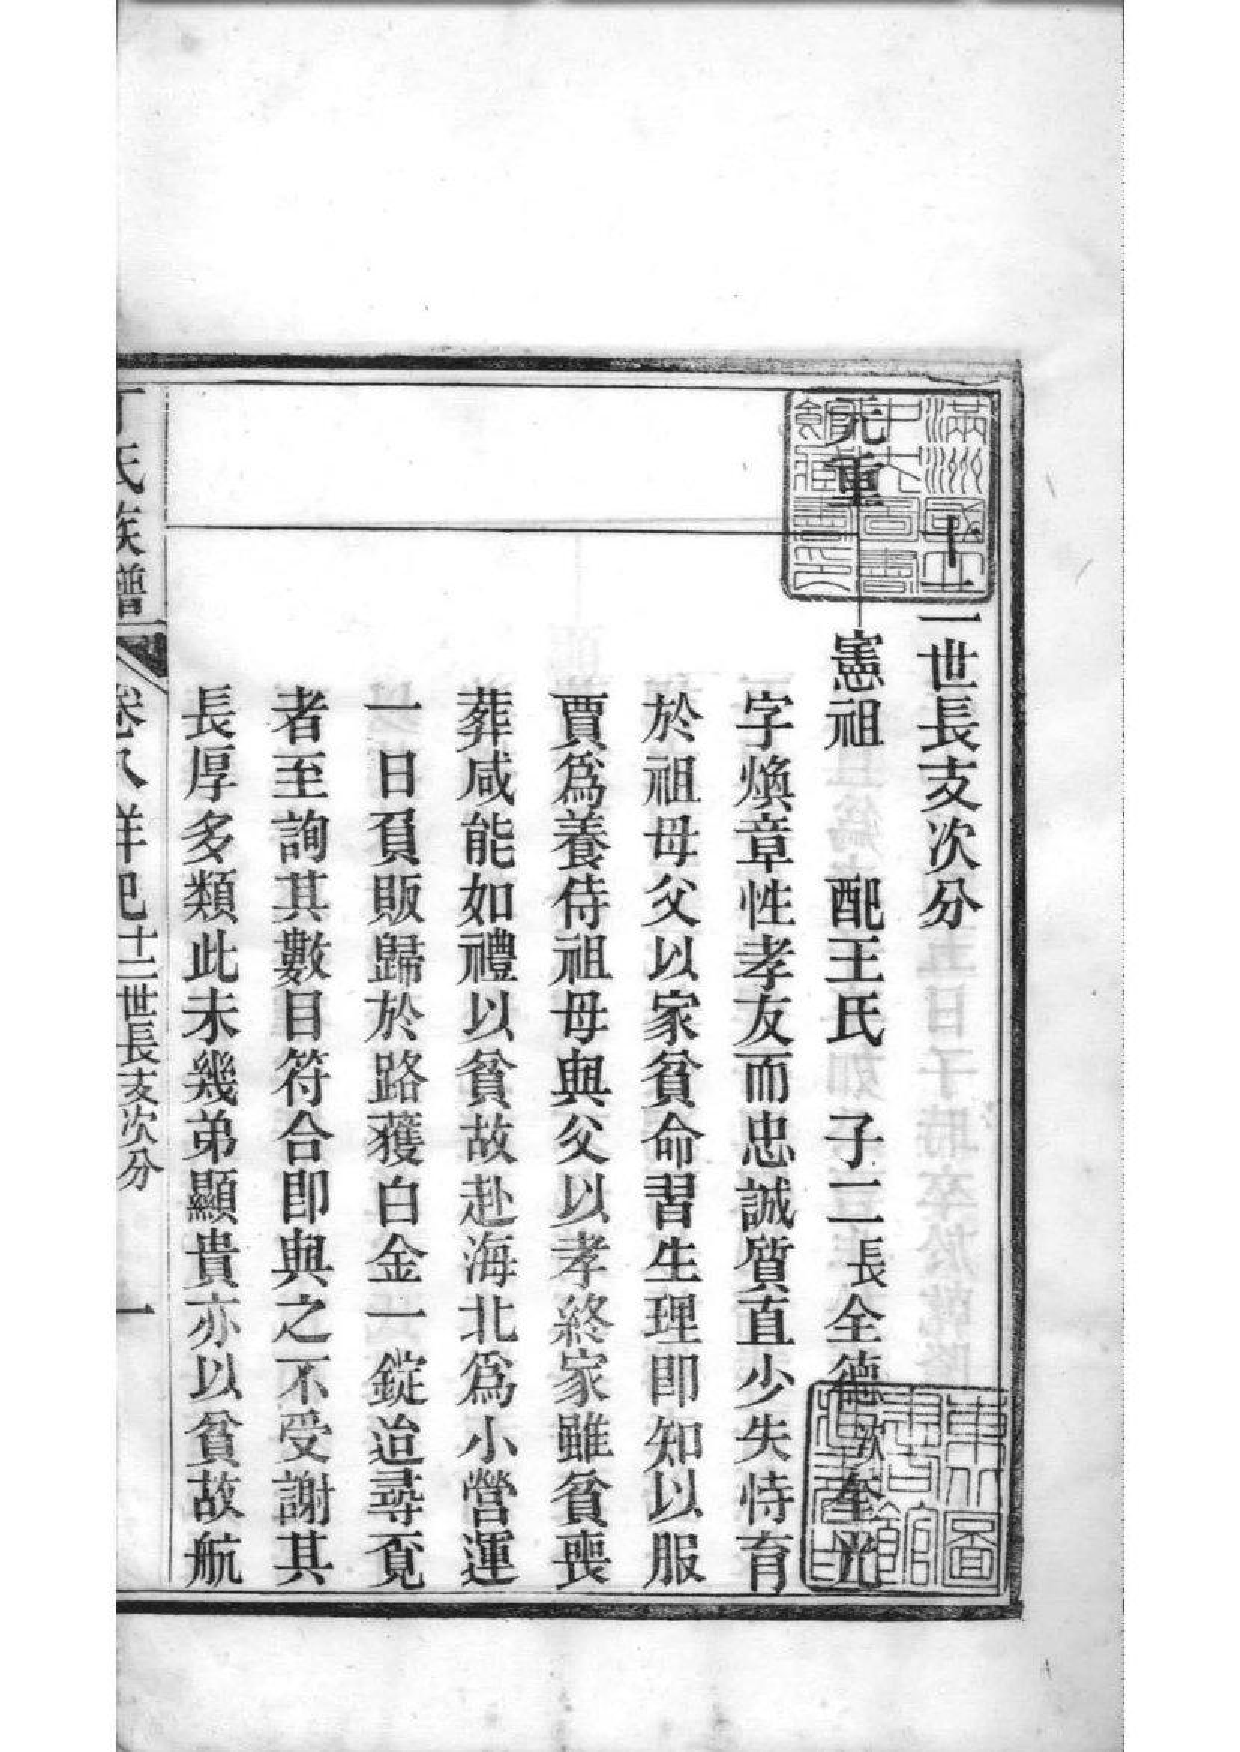 十二世長支次分
元重
憲祖 配王氏 子二長全德次全光
字煥章性孝友而忠誠質直少失恃育
於祖母父以家貧命習生理即知以服
賈爲養侍祖母與父以孝終家雖貧喪
葬咸能如禮以貧故赴海北爲小營運
一日負販歸於路獲白金一錠迨尋覓
者至詢其數目符合即與之不受謝其
長厚多類此未幾弟顯貴亦以貧故航
丁氏族譜 卷八詳紀十二世長支次分 一